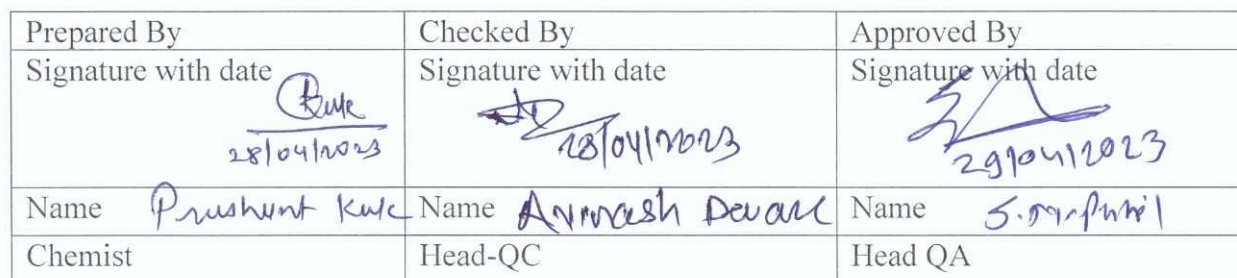 Prepared By Checked By Approved By
Signature with date Signature with date Signature with date
28/04/2023 28/04/2023 29/04/2023
Name Prashant Kute Name Avinash Devare Name S. M. Patil
Chemist Head-QC Head QA